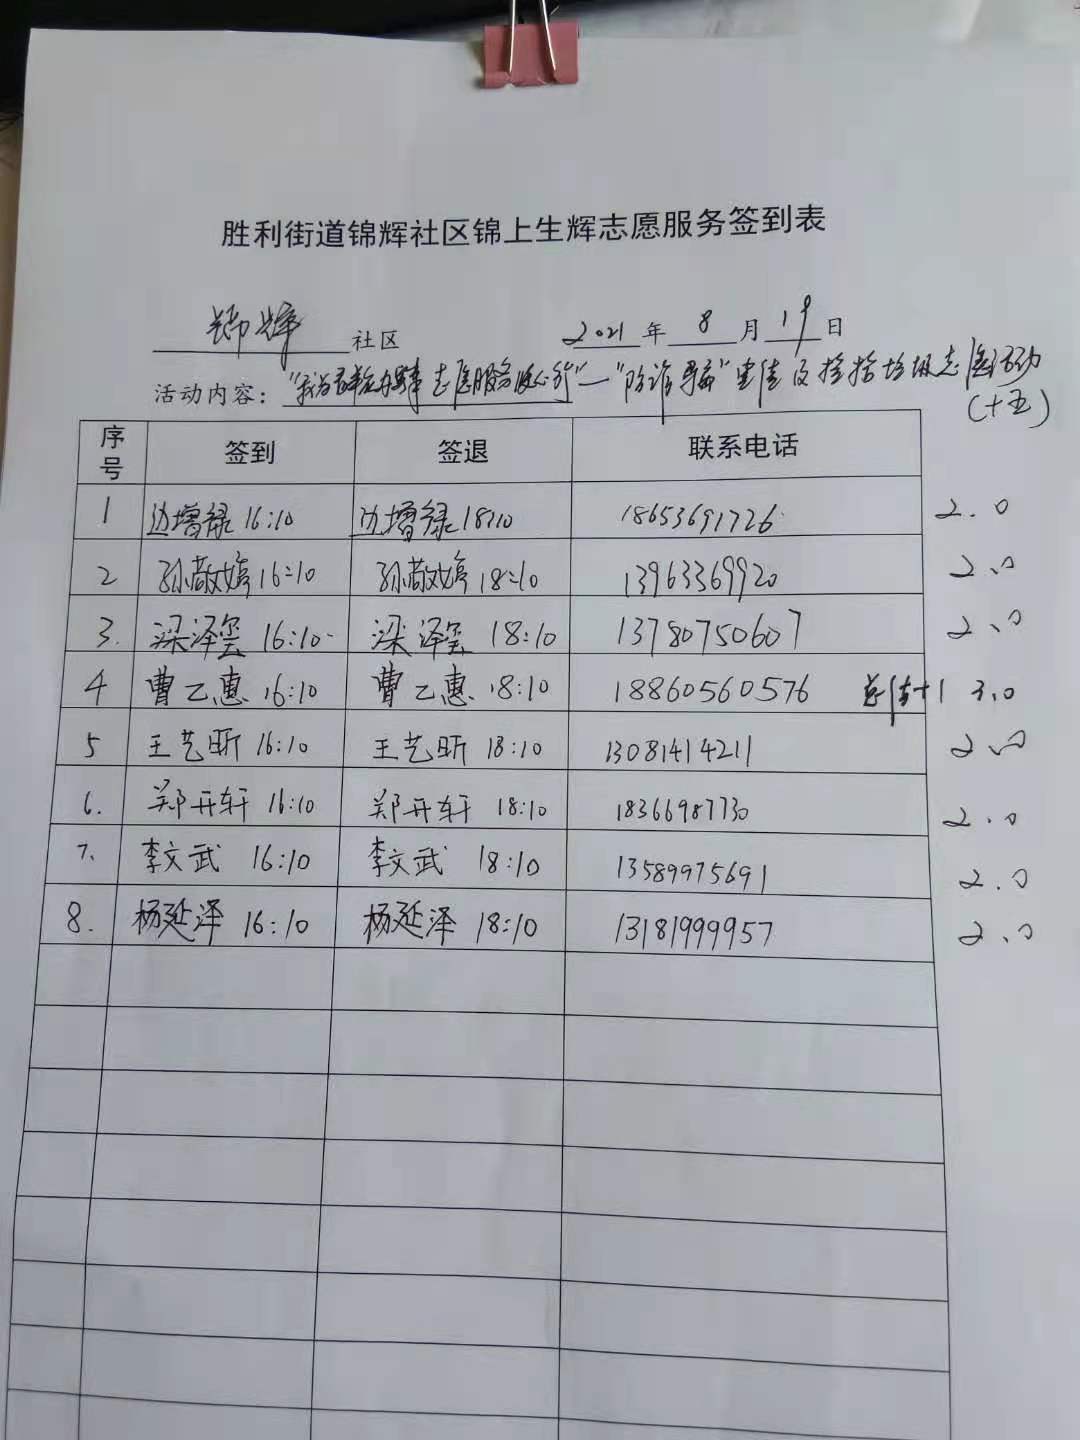 胜利街道锦辉社区锦上生辉志愿服务签到表
锦辉 社区 2021 年 8 月 19 日
活动内容: "我为群众办实事 志愿服务暖心行"—"防诈骗"宣传及捡拾垃圾志愿活动
(十五)
序号 签到 签退 联系电话
1 边增禄 16:10 边增禄 18:10 18653691726 2.0
2 孙敬婷 16:10 孙敬婷 18:10 13963369920 2.0
3. 梁泽玺 16:10 梁泽玺 18:10 13780750607 2.0
4 曹乙惠 16:10 曹乙惠 18:10 18860560576 总结+1 3.0
5 王艺昕 16:10 王艺昕 18:10 13081414211 2.0
6. 郑开轩 16:10 郑开轩 18:10 18366987730 2.0
7. 李文武 16:10 李文武 18:10 13589975691 2.0
8. 杨延泽 16:10 杨延泽 18:10 13181999957 2.0